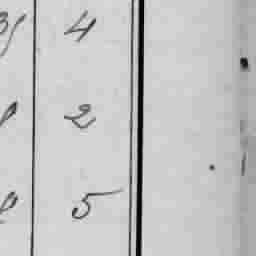 4
2
5